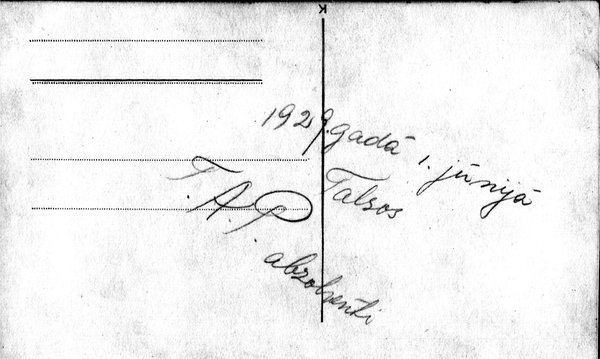 K
1929. gadā 1. jūnijā
Talsos
T.A.P.
absolventi